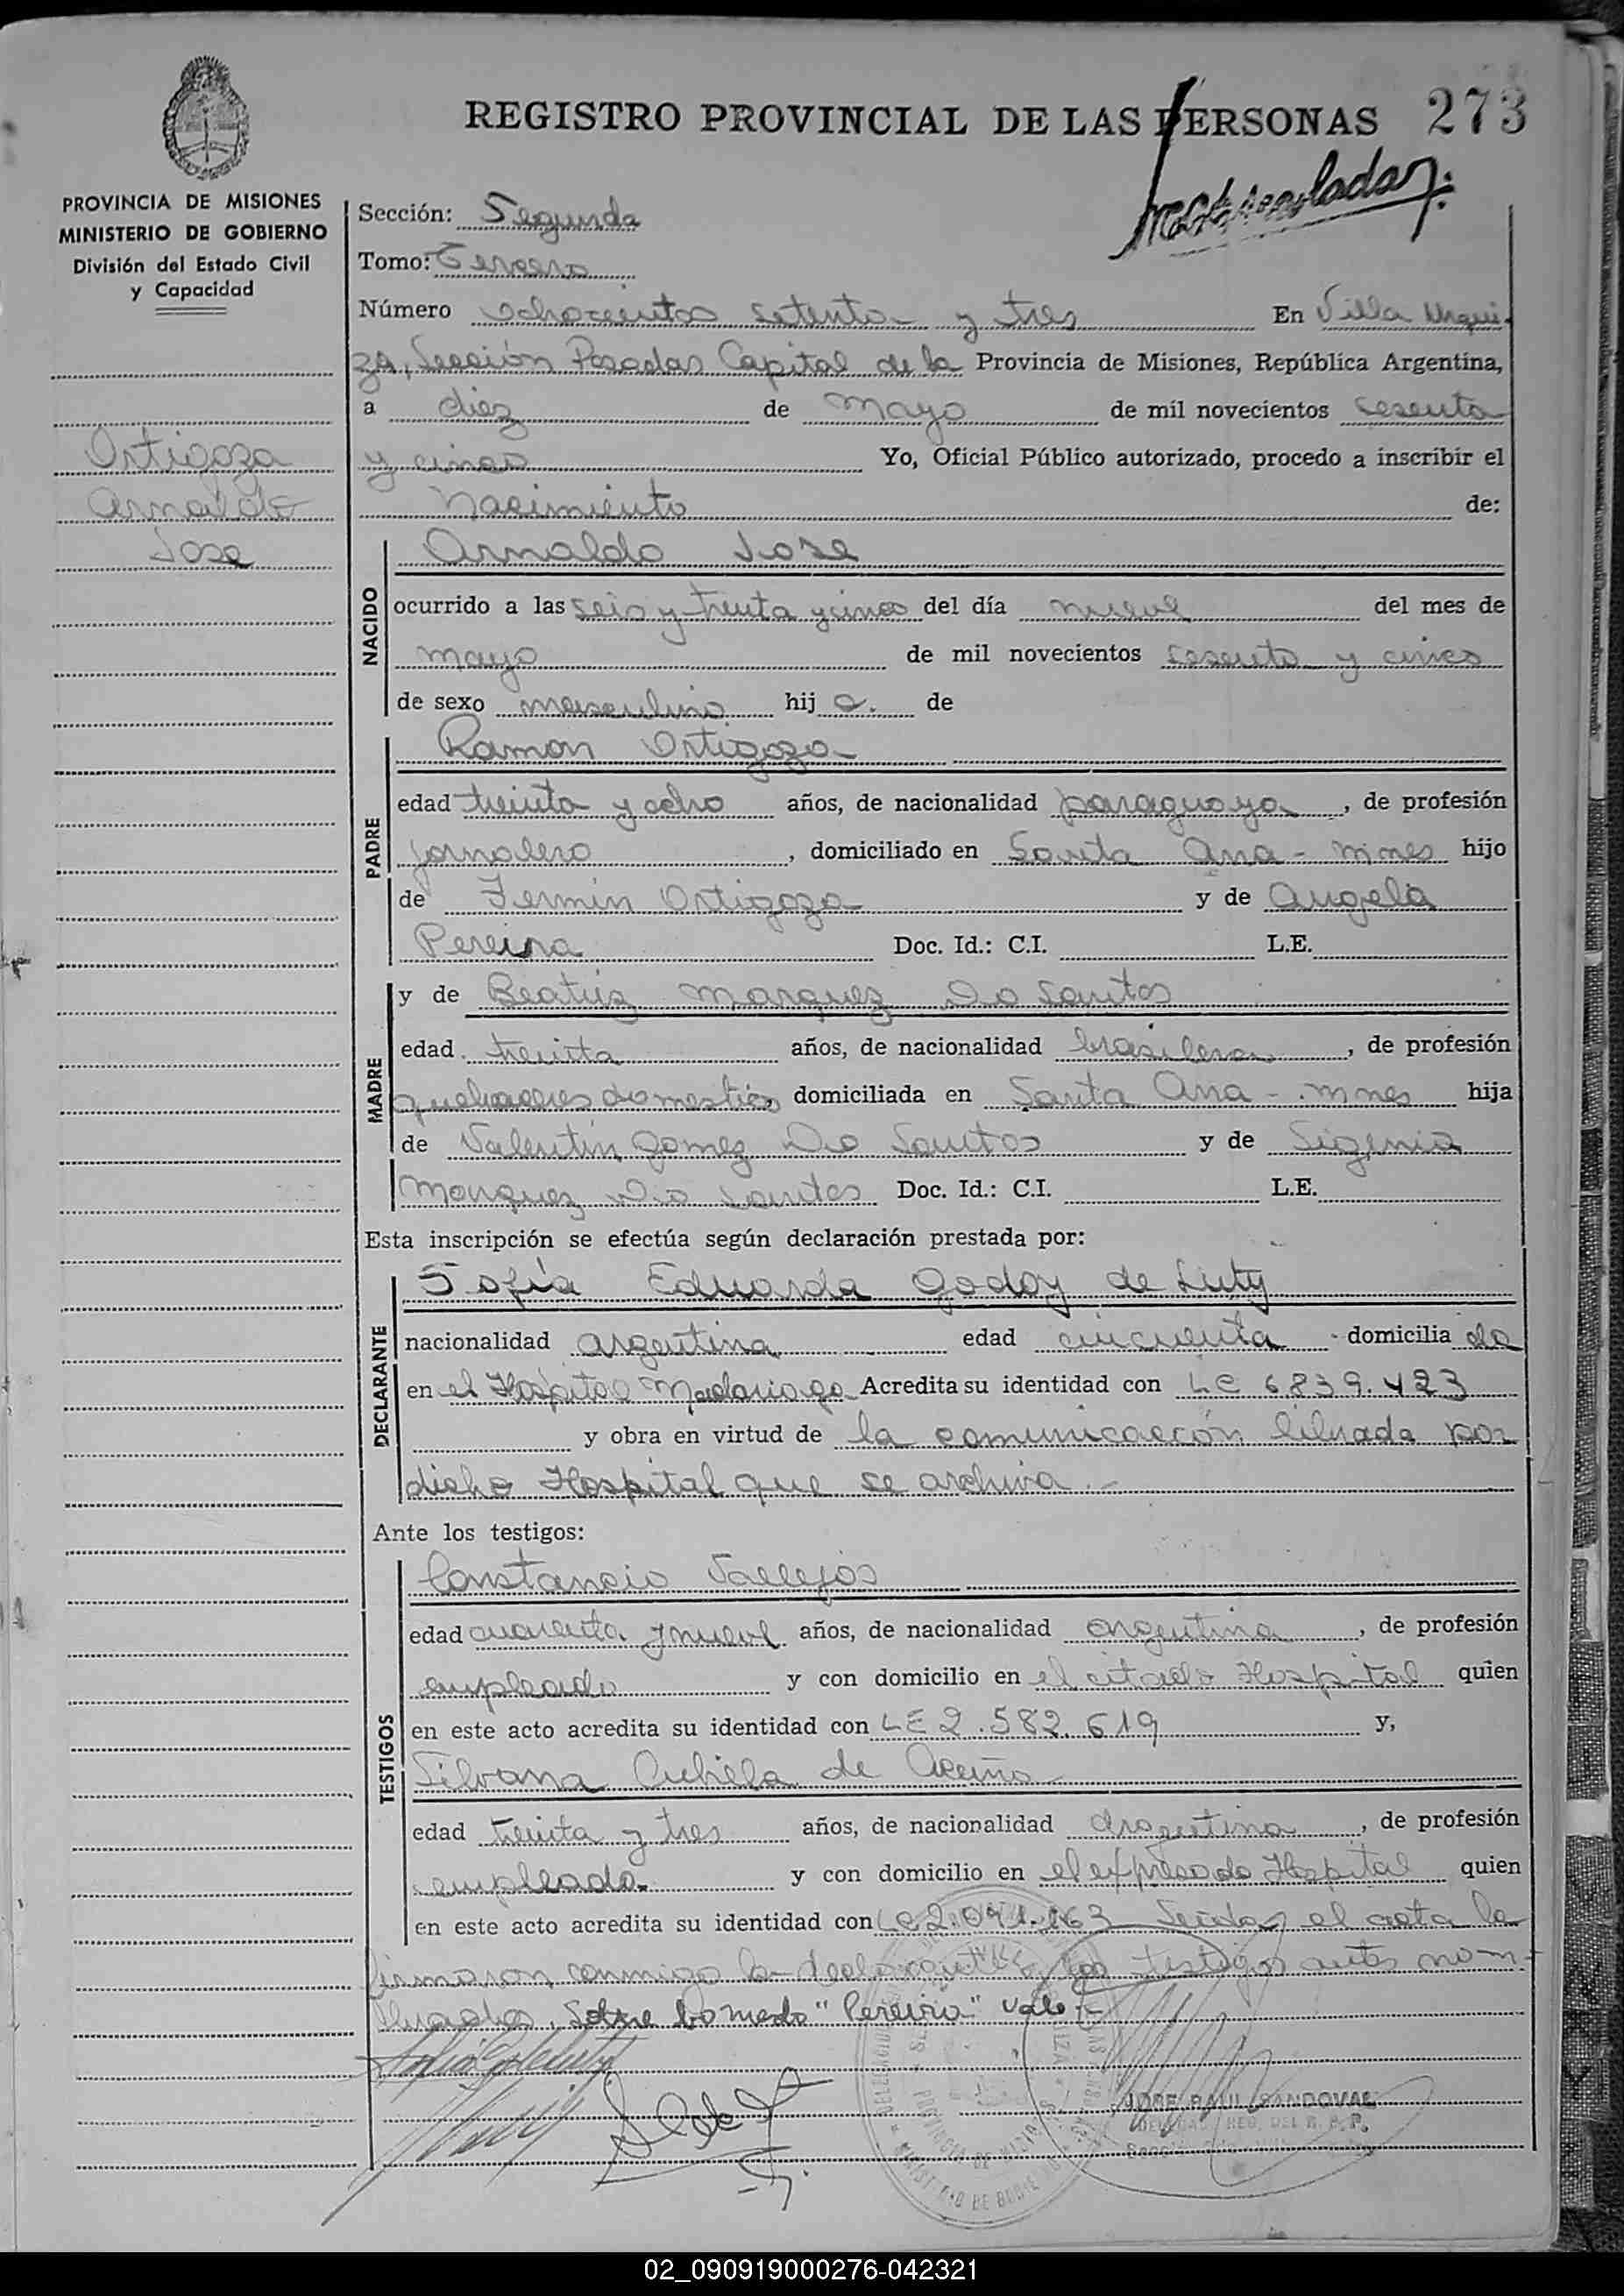 REGISTRO PROVINCIAL DE LAS PERSONAS 273
PROVINCIA DE MISIONES
MINISTERIO DE GOBIERNO
División del Estado Civil
y Capacidad
Ortigoza
Arnaldo
Jose
Sección: Segunda
Tomo: Tercero
Número ochocientos setenta y tres En Villa Urqui-
za, Sección Posadas Capital de la Provincia de Misiones, República Argentina,
a diez de mayo de mil novecientos sesenta
y cinco Yo, Oficial Público autorizado, procedo a inscribir el
nacimiento de:
NACIDO
Arnaldo Jose
ocurrido a las seis y treinta y cinco del día nueve del mes de
mayo de mil novecientos sesenta y cinco
de sexo masculino hij o. de
PADRE
Ramon Ortigoza
edad treinta y ocho años, de nacionalidad paraguaya, de profesión
jornalero, domiciliado en Santa Ana - mnes hijo
de Fermin Ortigoza y de Angela
Pereira Doc. Id.: C.I. L.E.
MADRE
y de Beatriz Marquez Do Santos
edad treinta años, de nacionalidad brasilera, de profesión
quehaceres domestico domiciliada en Santa Ana - mnes hija
de Valentin Gomez Do Santos y de Sigenia
Marquez Do Santos Doc. Id.: C.I. L.E.
Esta inscripción se efectúa según declaración prestada por:
DECLARANTE
Sofía Eduarda Godoy de Luty
nacionalidad argentina edad cincuenta domicilia da
en el Hospital Madariaga Acredita su identidad con LC 6839.423
y obra en virtud de la comunicación librada por
dicho Hospital que se archiva.-
Ante los testigos:
TESTIGOS
Constancio Vallejos
edad cuarenta y nueve años, de nacionalidad argentina, de profesión
empleado y con domicilio en el citado Hospital quien
en este acto acredita su identidad con LE 2.582.619 y,
Silvana de
edad treinta y tres años, de nacionalidad argentina, de profesión
empleada y con domicilio en el expresado Hospital quien
en este acto acredita su identidad con Leida el acta la
firmaron conmigo la declarante y los testigos antes nom-
brados. Sobre borrado "Pereira" vale.-
JOSE RAUL SANDOVAL
02_090919000276-042321